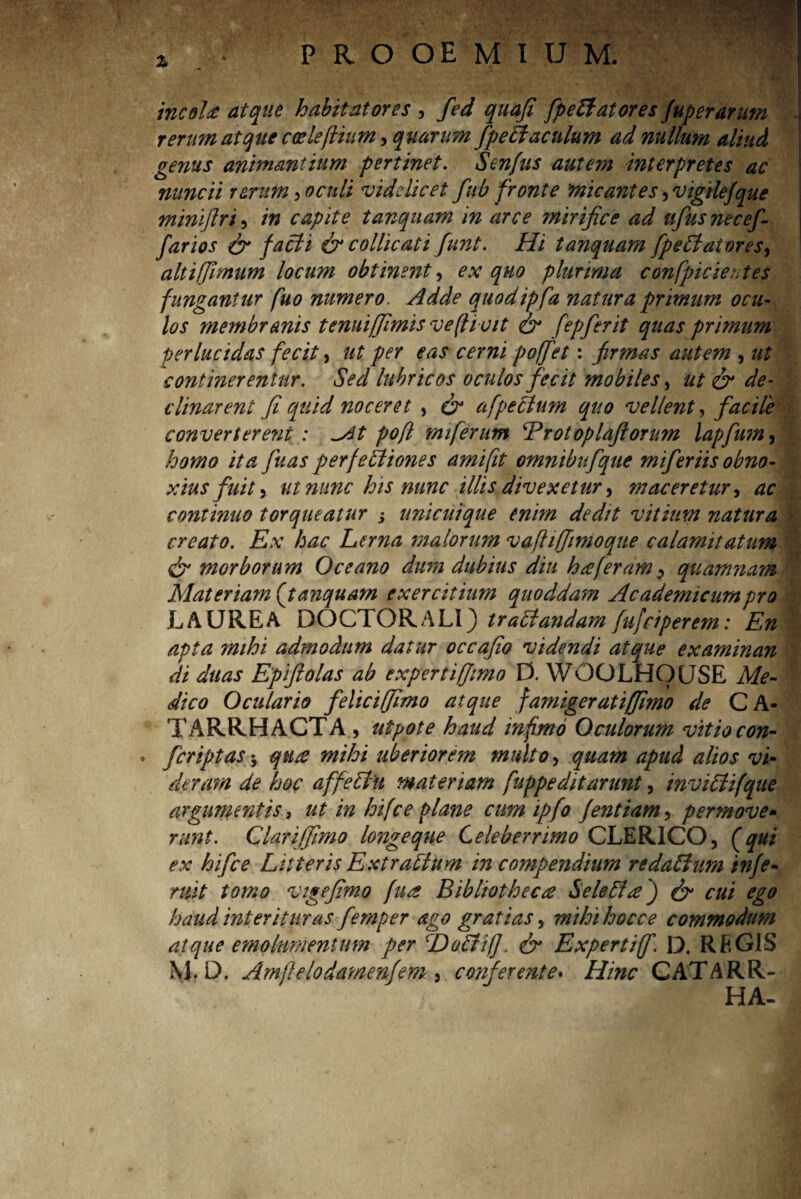 2 PROOEMIUM.
incolæ atque habitatores, ſed quaſi ſpectatores ſuperarum
rerum atque cœleſtium, quarum ſpectaculum ad nullum aliud
genus animantium pertinet. Senſus autem interpretes ac
nuncii rerum, oculi videlicet ſub fronte micantes, vigileſque
miniſtri, in capite tanquam in arce mirifice ad uſus neceſ-
ſarios & facti & collicati ſunt. Hi tanquam ſpectatores,
altiſſimum locum obtinent, ex quo plurima conſpicientes
fungantur ſuo numero. Adde quod ipſa natura primum ocu-
los membranis tenuiſſimis veſtivit & ſepſerit quas primum
perlucidas fecit, ut per eas cerni poſſet: firmas autem, ut
continerentur. Sed lubricos oculos fecit mobiles, ut & de-
clinarent ſi quid noceret, & aſpectum quo vellent, facile
converterent: At poſt miſerum Protoplaſtorum lapſum,
homo ita ſuas perfectiones amiſit omnibuſque miſeriis obno-
xius fuit, ut nunc his nunc illis divexetur, maceretur, ac
continuo torqueatur; unicuique enim dedit vitium natura
creato. Ex hac Lerna malorum vaſtiſſimoque calamitatum
& morborum Oceano dum dubius diu hæſeram, quamnam
Materiam (tanquam exercitium quoddam Academicum pro
LAUREA DOCTORALI) tractandam ſuſciperem: En
apta mihi admodum datur occaſio videndi atque examinan
di duas Epiſtolas ab expertiſſimo D. WOOLHOUSE Me-
dico Oculario feliciſſimo atque famigeratiſſimo de CA-
TARRHACTA, utpote haud infimo Oculorum vitio con-
ſcriptas; quæ mihi uberiorem multo, quam apud alios vi-
deram de hoc affectu materiam ſuppeditarunt, invictiſque
argumentis, ut in hiſce plane cum ipſo ſentiam, permove-
runt. Clariſſimo longeque Celeberrimo CLERICO, (qui
ex hiſce Litteris Extractum in compendium redactum inſe-
ruit tomo vigeſimo ſuæ Bibliothecæ Selectæ) & cui ego
haud interituras ſemper ago gratias, mihi hocce commodum
atque emolumentum per Doctiſſ. & Expertiſſ. D. REGIS
M. D. Amſtelodamenſem, conferente. Hinc CATARR-
HA-